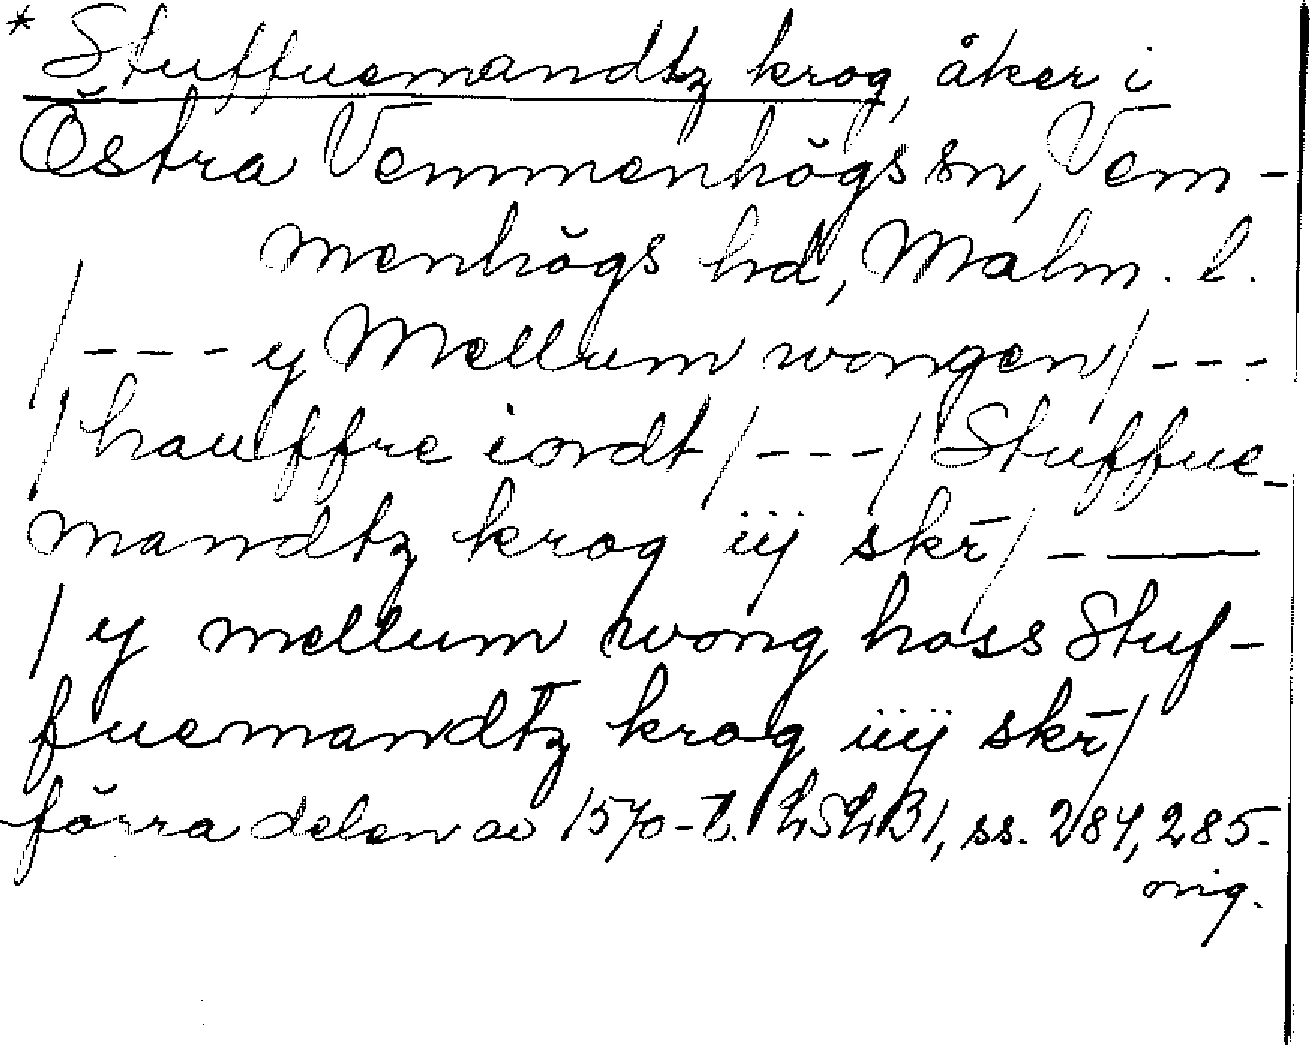 * Stuffuemandtz krog, åker i
Östra Vemmenhögs sn, Vem-
menhögs hd, Malm. l.
/--- y Mellum wongen/---
/hauffre iordt/---/Stuffue-
mandtz krog iij skr̄/- —
/y mellum wong hoss Stuf-
fuemandtz̄ krog iiij skr̄/
förra delen av 1570-t. LSLB1, ss. 284, 285.
orig.